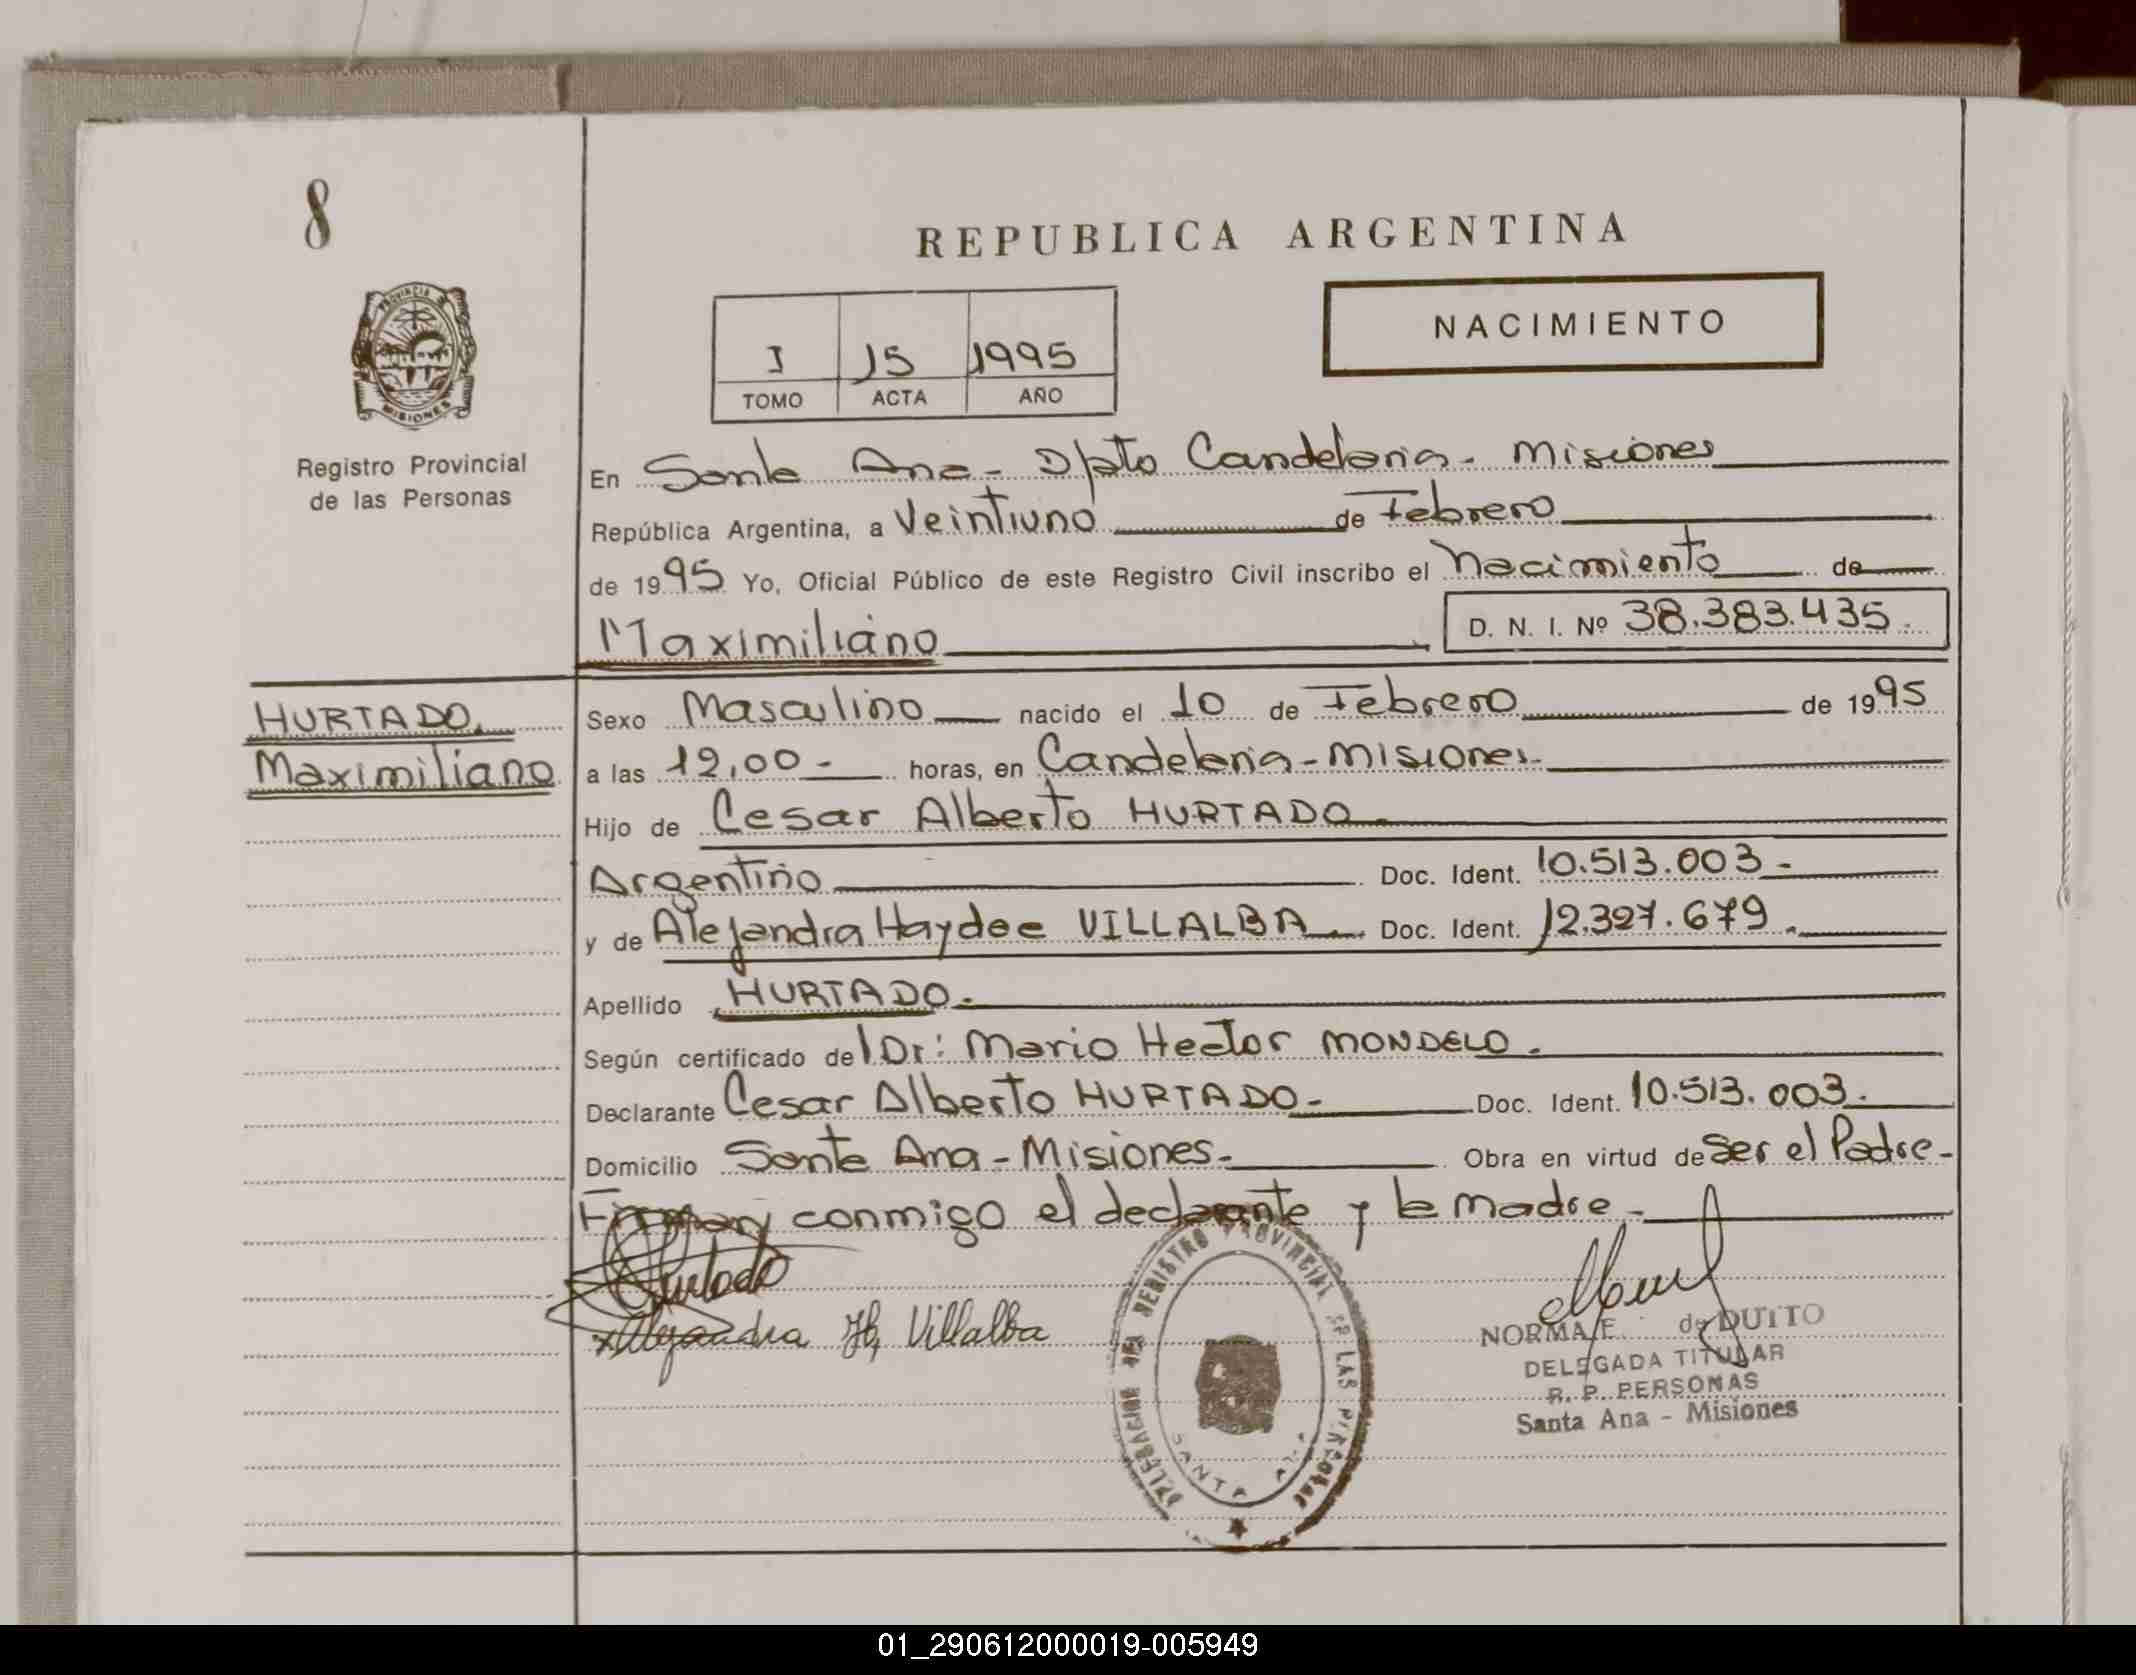 8
REPUBLICA ARGENTINA
NACIMIENTO
I 15 1995
TOMO ACTA AÑO
PROVINCIA DE
MISIONES
Registro Provincial
de las Personas
En Santa Ana - D/pto Candelaria - Misiones
República Argentina, a Veintiuno de Febrero
de 1995 Yo, Oficial Público de este Registro Civil inscribo el Nacimiento de
Maximiliano D. N. I. Nº 38.383.435.
HURTADO.
Maximiliano
Sexo Masculino nacido el 10 de Febrero de 1995
a las 12,00 - horas, en Candelaria - Misiones.
Hijo de Cesar Alberto HURTADO.
Argentino Doc. Ident. 10.513.003 -
y de Alejandra Haydee VILLALBA. Doc. Ident. 12.327.679.
Apellido HURTADO.
Según certificado del Dr: Mario Hector MONDELO.
Declarante Cesar Alberto HURTADO - Doc. Ident. 10.513.003.
Domicilio Santa Ana - Misiones. Obra en virtud de Ser el Padre -
Firman conmigo el declarante y la madre -
Hurtado
x Alejandra H, Villalba
DELEGACION DEL REGISTRO PROVINCIAL DE LAS PERSONAS
SANTA ANA
NORMA E. de DUITO
DELEGADA TITULAR
R. P. PERSONAS
Santa Ana - Misiones
01_290612000019-005949